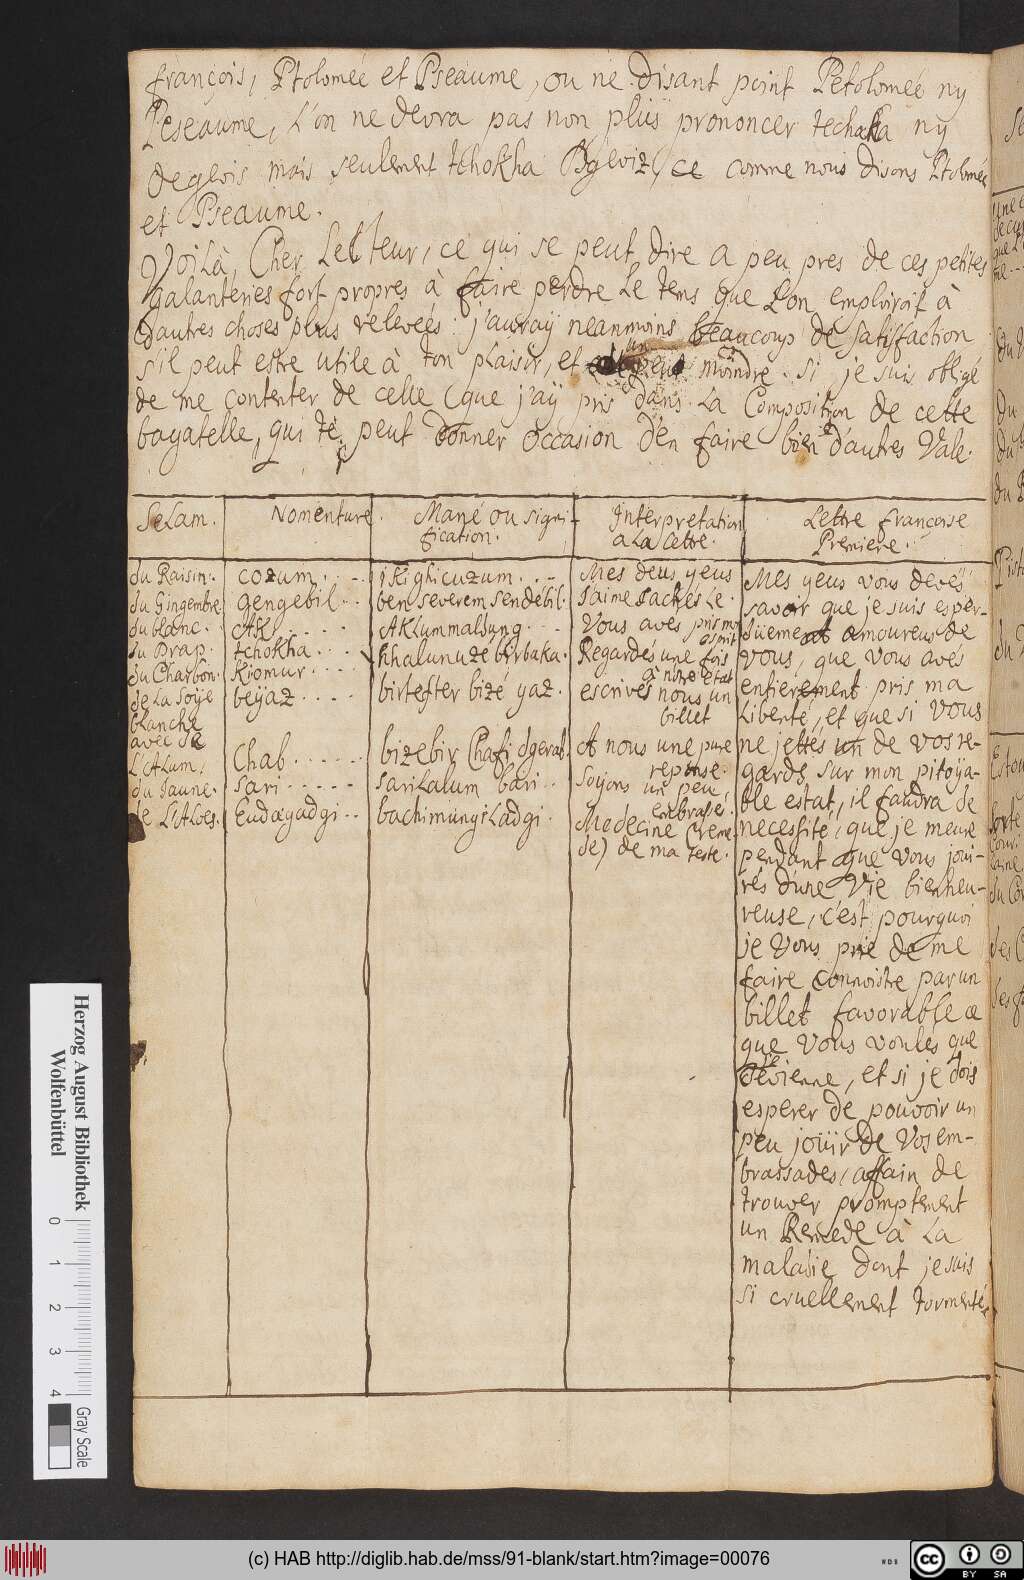 françois, Ptolomée et Pseaume, ou ne disant point Petolomée ny
Peseaume, L'on ne devra pas non plus prononcer techaka ny
degevis mais seulement tchokha Dgeviz, ce comme nous disons Ptolomée
et Pseaume.
Voilà, Cher Lecteur, ce qui se peut dire a peu pres de ces petites
galanteries fort propres à faire perdre Le tems que L'on emploiroit à
d'autres choses plus relevées: j'auray neanmoins beaucoup de satisfaction
s'il peut estre utile à ton plaisir, et un moindre si je suis obligé
de me contenter de celle que j'aÿ pris dans La Composition de cette
bagatelle, qui te peut donner occasion d'en faire bien d'autres Vale.
Selam.
Nomenture.
Mané ou signi-
fication.
Interpretation
a La Lettre.
Lettre françoise
Premiere.
du Raisin.
du Gingembre
du blanc.
du Drap.
du Charbon.
de La Soÿe
blanche
avec de
L'Alum.
du Jaune.
de L'Aloes.
cozum.
gengebil.
Ak.
tchokha.
Kiomur.
beÿaz.
Chab.
sari.
Eudagadgi.
iki ghicuzum.
ben severem sendebil.
Aklummaldung.
khalunuze birbaka.
birtefter bizé yaz.
bizebir Chafi dgerab.
sarilalum bari.
bachimungiladgi.
Mes deus yeus
J'aime sachés Le.
Vous avés pris mo
esprit
Regardés une fois
à nôtre etat
escrivés nous un
billet
A nous une pure
reponse.
Soyons un peu,
embrassés.
Medecine (reme
de) de ma teste.
Mes yeus vous devés
savoir que je suis esper-
düement amoureus de
vous, que vous avés
entierement pris ma
Liberté, et que si vous
ne jettés un de vos re-
gards sur mon pitoÿa-
ble estat, il faudra de
necessité, que je meure
pendant que vous joui-
rés d'une Vie bienheu-
reuse, c'est pourquoi
je Vous prie de me
faire connoistre par un
billet favorable ce
que Vous voulés que
je devienne, et si je dois
esperer de pouvoir un
peu joüir de Vos em-
brassades, affain de
trouver promptement
un Remede à La
maladie dont je suis
si cruellement tormenté.
Herzog August Bibliothek
Wolfenbüttel
0 1 2 3 4
Gray Scale
(c) HAB http://diglib.hab.de/mss/91-blank/start.htm?image=00076
WDB
cc BY SA